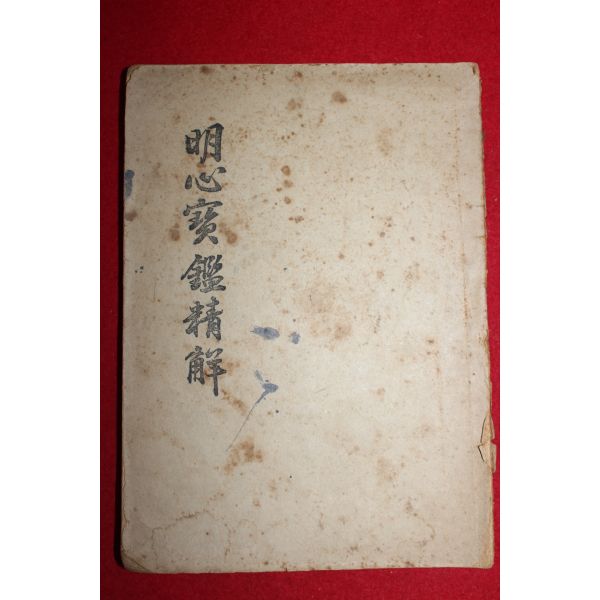 明心寶鑑精解